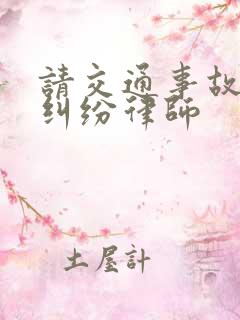 請交通事故
糾纷律師
土屋計